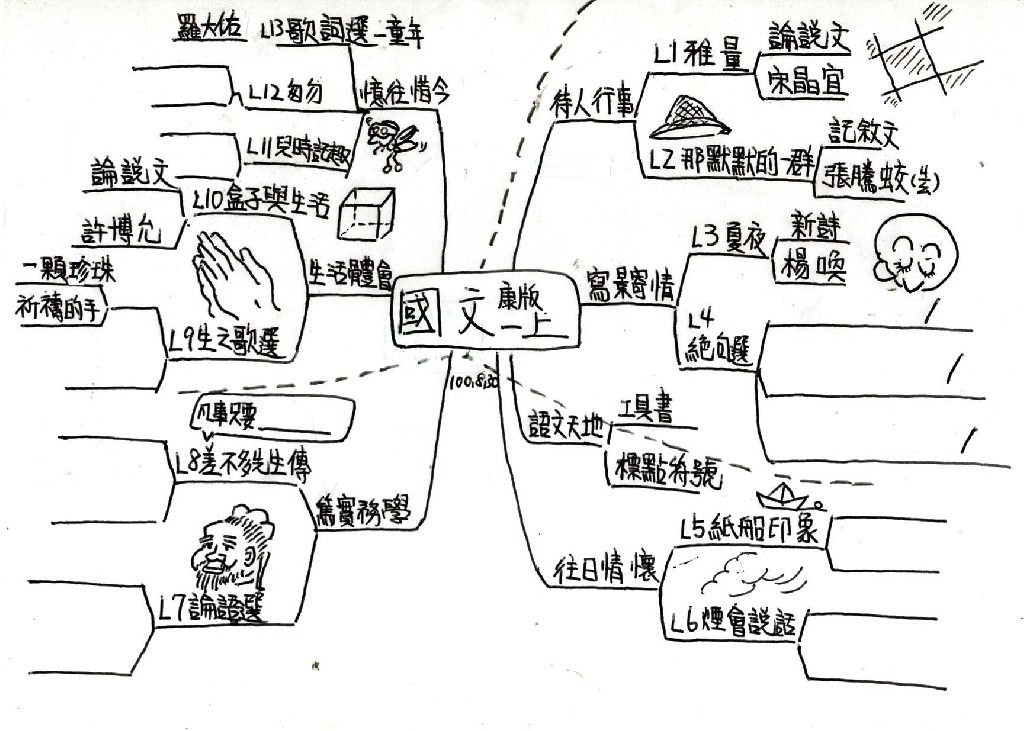 國文 康版 一上
100.8.30
待人行事
L1雅量
論說文
宋晶宜
L2那默默的一群
記敘文
張騰蛟(生)
寫景寄情
L3夏夜
新詩
楊喚
L4
絕句選
語文天地
工具書
標點符號
往日情懷
L5紙船印象
L6煙會說話
篤實務學
L7論語選
L8差不多先生傳
凡事只要
生活體會
L9生之歌選
一顆珍珠
祈禱的手
L10盒子與生活
論說文
許博允
憶往惜今
L11兒時記趣
L12匆匆
L13歌詞選—童年
羅大佑